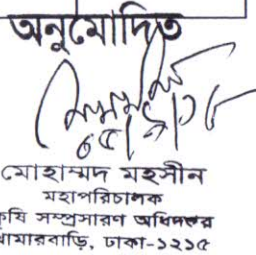 অনুমোদিত
মোহাম্মদ মহসীন
মহাপরিচালক
কৃষি সম্প্রসারণ অধিদপ্তর
খামারবাড়ি, ঢাকা-১২১৫